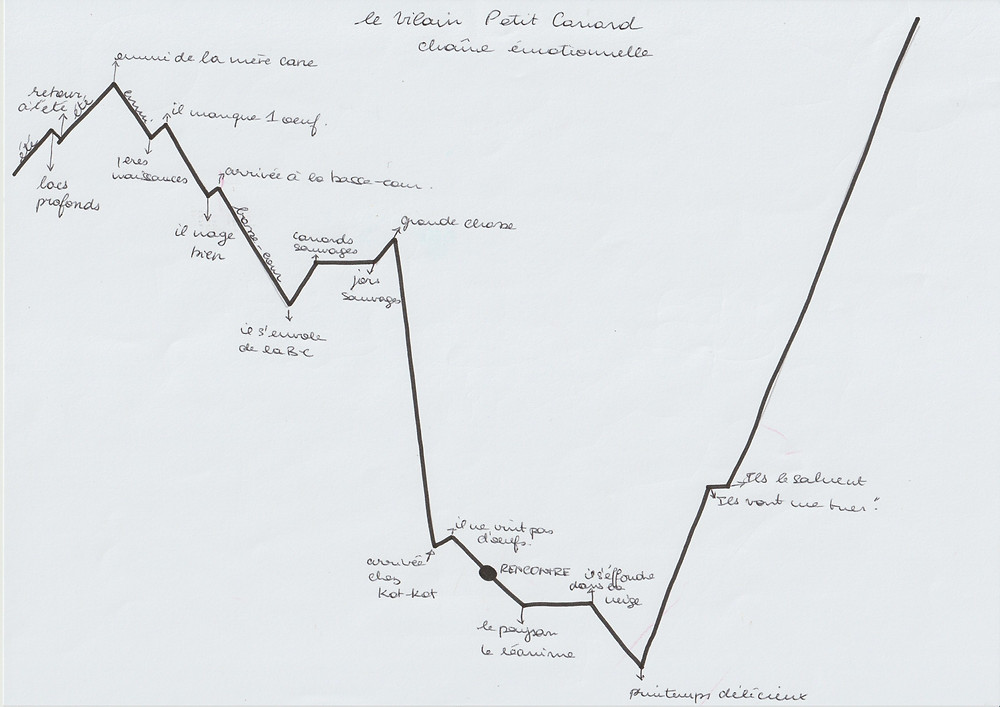 le Vilain Petit Canard
chaîne émotionnelle
ennui de la mère cane
retour
à l'été
été
été
ennui
il manque 1 oeuf.
lacs
profonds
1eres
naissances
arrivée à la basse-cour.
il nage
bien
basse-cour
canards
sauvages
grande chasse
jars
sauvages
il s'envole
de la B-C
arrivée
chez
Kot-Kot
il ne pond pas
d'oeufs.
RENCONTRE
il s'éffondre
dans la
neige
le paysan
le réanime
Ils le saluent
"Ils vont me tuer"
printemps délicieux